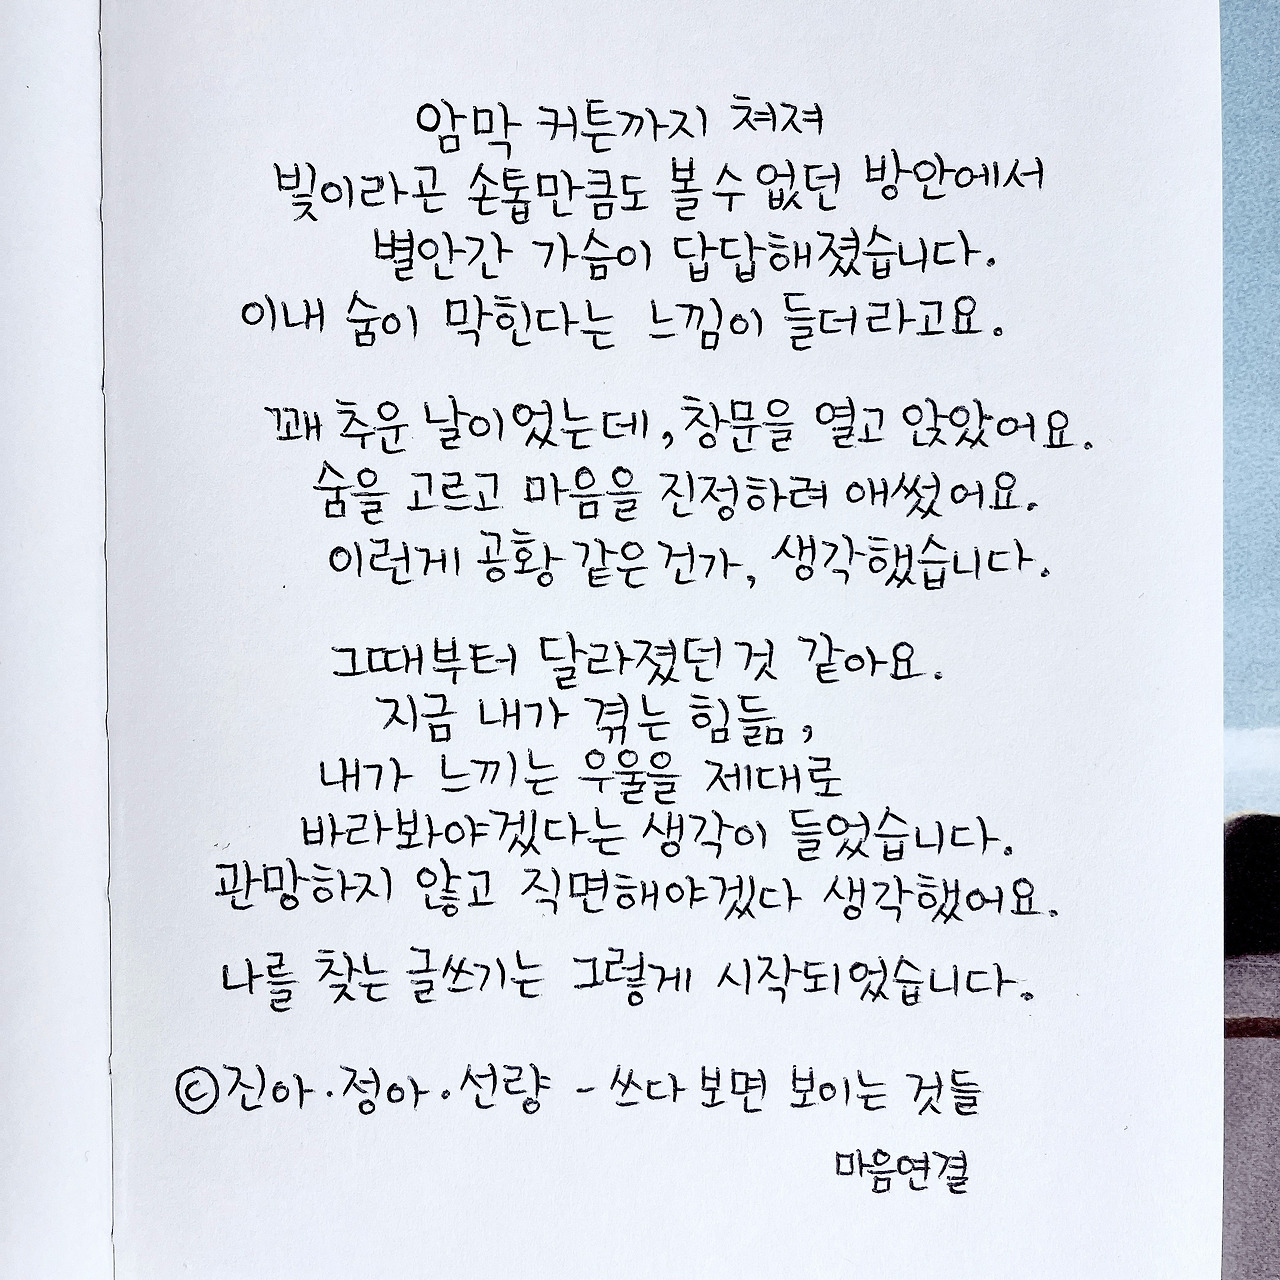 암막 커튼까지 쳐져
빛이라곤 손톱만큼도 볼 수 없던 방안에서
별안간 가슴이 답답해졌습니다.
이내 숨이 막힌다는 느낌이 들더라고요.
꽤 추운 날이었는데, 창문을 열고 앉았어요.
숨을 고르고 마음을 진정하려 애썼어요.
이런게 공황 같은건가, 생각했습니다.
그때부터 달라졌던 것 같아요.
지금 내가 겪는 힘듦,
내가 느끼는 우울을 제대로
바라봐야겠다는 생각이 들었습니다.
관망하지 않고 직면해야겠다 생각했어요.
나를 찾는 글쓰기는 그렇게 시작되었습니다.
©진아·정아·선량 - 쓰다 보면 보이는 것들
마음연결